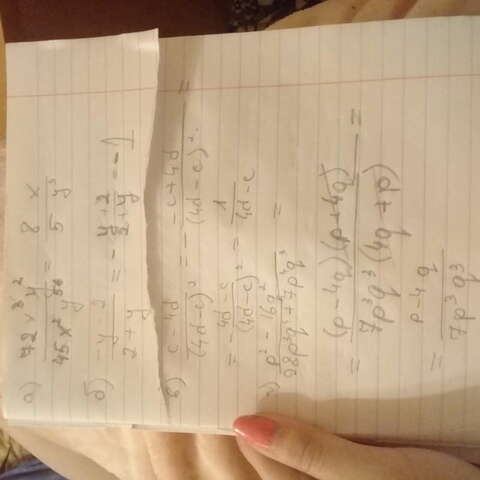 а) 72x³y² / 45x²y⁵⁶ = 8 x / 5 y³
б) -y - 2 / 2 + y = - y + 2 / 2 + y = - 1
в) c - 4d / (4d - c)² = - -c + 4d / (4d - c)². =
= - 4d - c / (4d - c)² = 1 / 4d - c
г) p² - 16q² / 28p³q⁴ + 7p⁴q³ =
= (p - 4q)(p + 4q) / 7p³q³(4q + p) =
= p - 4q / 7p³q³